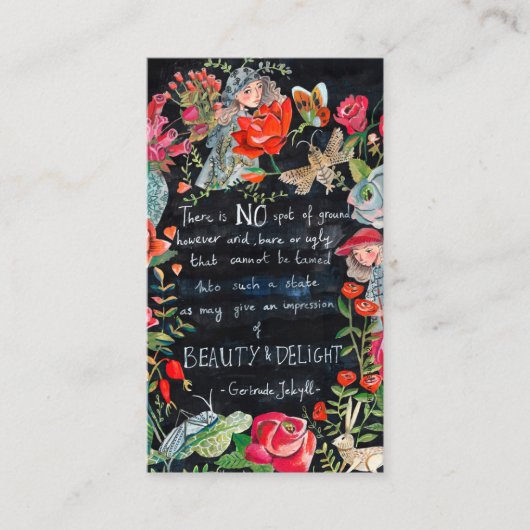 There is NO spot of ground
however arid, bare or ugly
that cannot be tamed
Into such a state
as may give an impression
of
BEAUTY & DELIGHT
- Gertrude Jekyll -